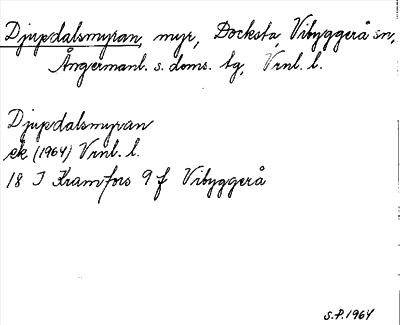 Djupdalsmyran, myr, Docksta, Vibyggerå sn,
Ångermanl. s. doms. tg, Vrnl. l.
Djupdalsmyran
ek (1964) Vrnl. l.
18 I Kramfors 9 f Vibyggerå
S.P. 1964